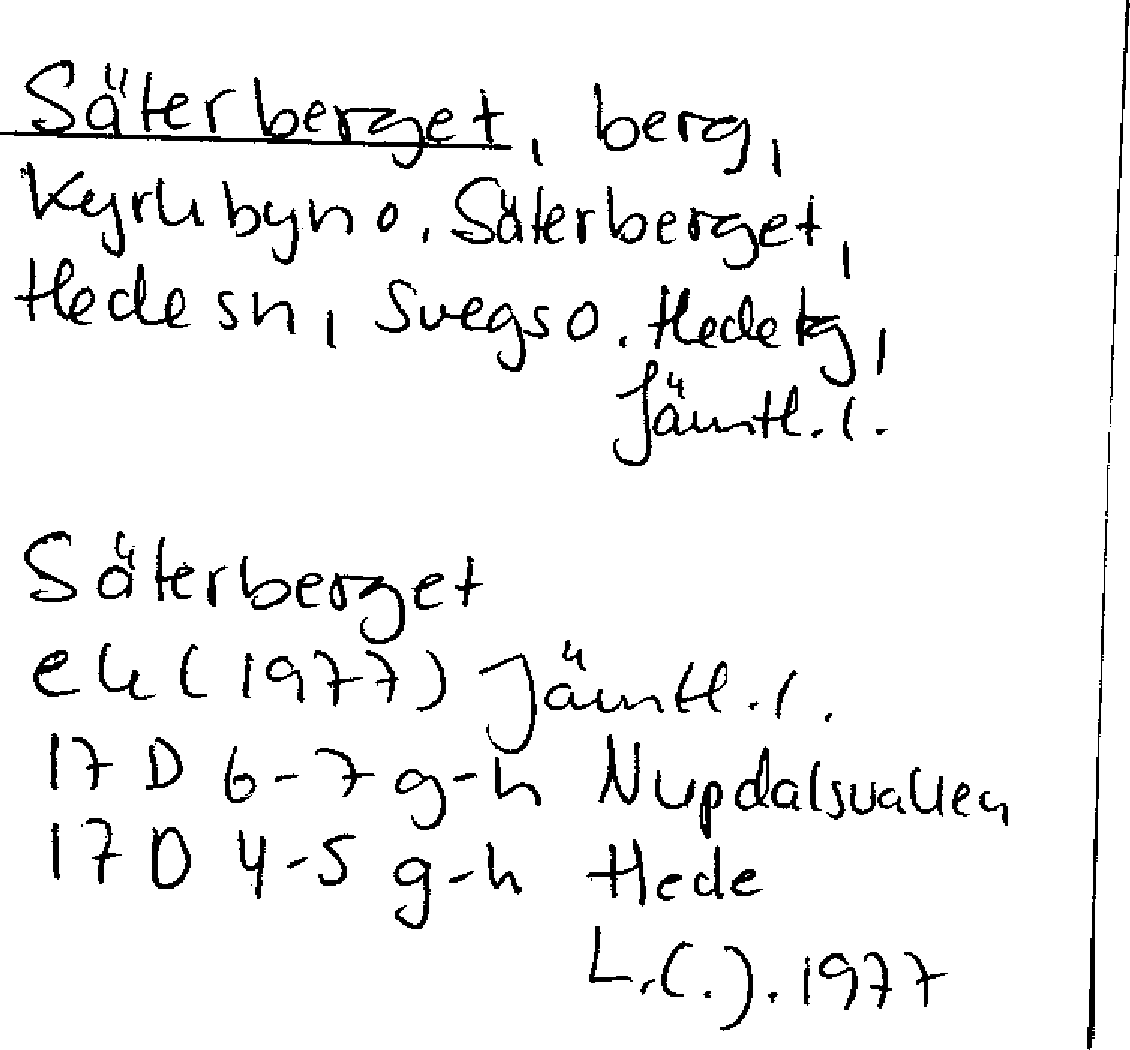 Säterberget, berg,
Kyrkbyn o. Säterberget,
Hede sn, Svegs o. Hede tg,
Jämtl. l.
Säterberget
ek (1977) Jämtl. l.
17 D 6-7 g-h Nupdalsvallen
17 D 4-5 g-h Hede
1977